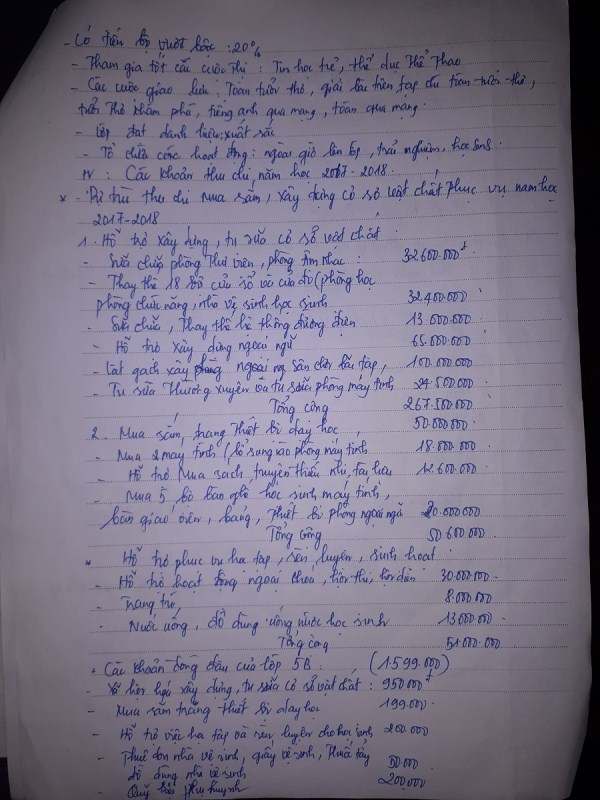 - Có tiến bộ vượt bậc : 20%
- Tham gia tốt các cuộc thi : Tin học trẻ, thể dục thể thao
- Các cuộc giao lưu : Toán tuổi thơ, giải bài trên tạp chí toán tuổi thơ,
trên thơ khám phá, tiếng anh qua mạng, toán qua mạng.
- Lớp đạt danh hiệu : xuất sắc
- Tổ chức các hoạt động : ngoài giờ lên lớp, trải nghiệm, học sinh
IV : Các khoản thu chi, năm học 2017-2018.
* - Dự trù thu chi mua sắm, xây dựng cơ sở vật chất phục vụ năm học
2017-2018
1. Hỗ trợ xây dựng, tu sửa cơ sở vật chất
- Sửa chữa phòng thư viện, phòng âm nhạc : 32.600.000đ
- Thay thế 18 bộ cửa sổ và cửa đi (phòng học
phòng chức năng, nhà vệ sinh học sinh 32.400.000
- Sửa chữa, thay thế hệ thống đường điện 13.000.000
- Hỗ trợ xây dựng ngoại ngữ 65.000.000
- Lát gạch xây ngoài sân chơi bãi tập, 100.000.000
- Tu sửa thường xuyên và tu sửa phòng máy tính 24.500.000
Tổng cộng 267.500.000
2. Mua sắm, trang thiết bị dạy học, 50.000.000
- Mua 2 máy tính (bổ sung vào phòng máy tính 18.000.000
- Hỗ trợ mua sách, truyện thiếu nhi, tài liệu 12.600.000
- Mua 5 bộ bàn ghế học sinh máy tính,
bàn giáo viên, bảng, thiết bị phòng ngoại ngữ 20.000.000
Tổng cộng 50 600 000
* Hỗ trợ phục vụ học tập, rèn luyện, sinh hoạt
- Hỗ trợ hoạt động ngoại khóa, hội thi, hội diễn 30.000.000
- Trang trí, 8.000.000
- Nước uống, đồ dùng uống nước học sinh 13000.000
Tổng cộng 51.000.000
+ Các khoản đóng đầu của lớp 5B : (1.599.000)
- Xã hội hóa xây dựng, tu sửa cơ sở vật chất : 950000đ
- Mua sắm trang thiết bị dạy học 199.000
- Hỗ trợ việc học tập và rèn luyện cho học sinh 200.000
- Thuê dọn nhà vệ sinh, giấy vệ sinh, thuốc tẩy
đồ dùng nhà vệ sinh 50.000
- Quỹ hội phụ huynh 200.000